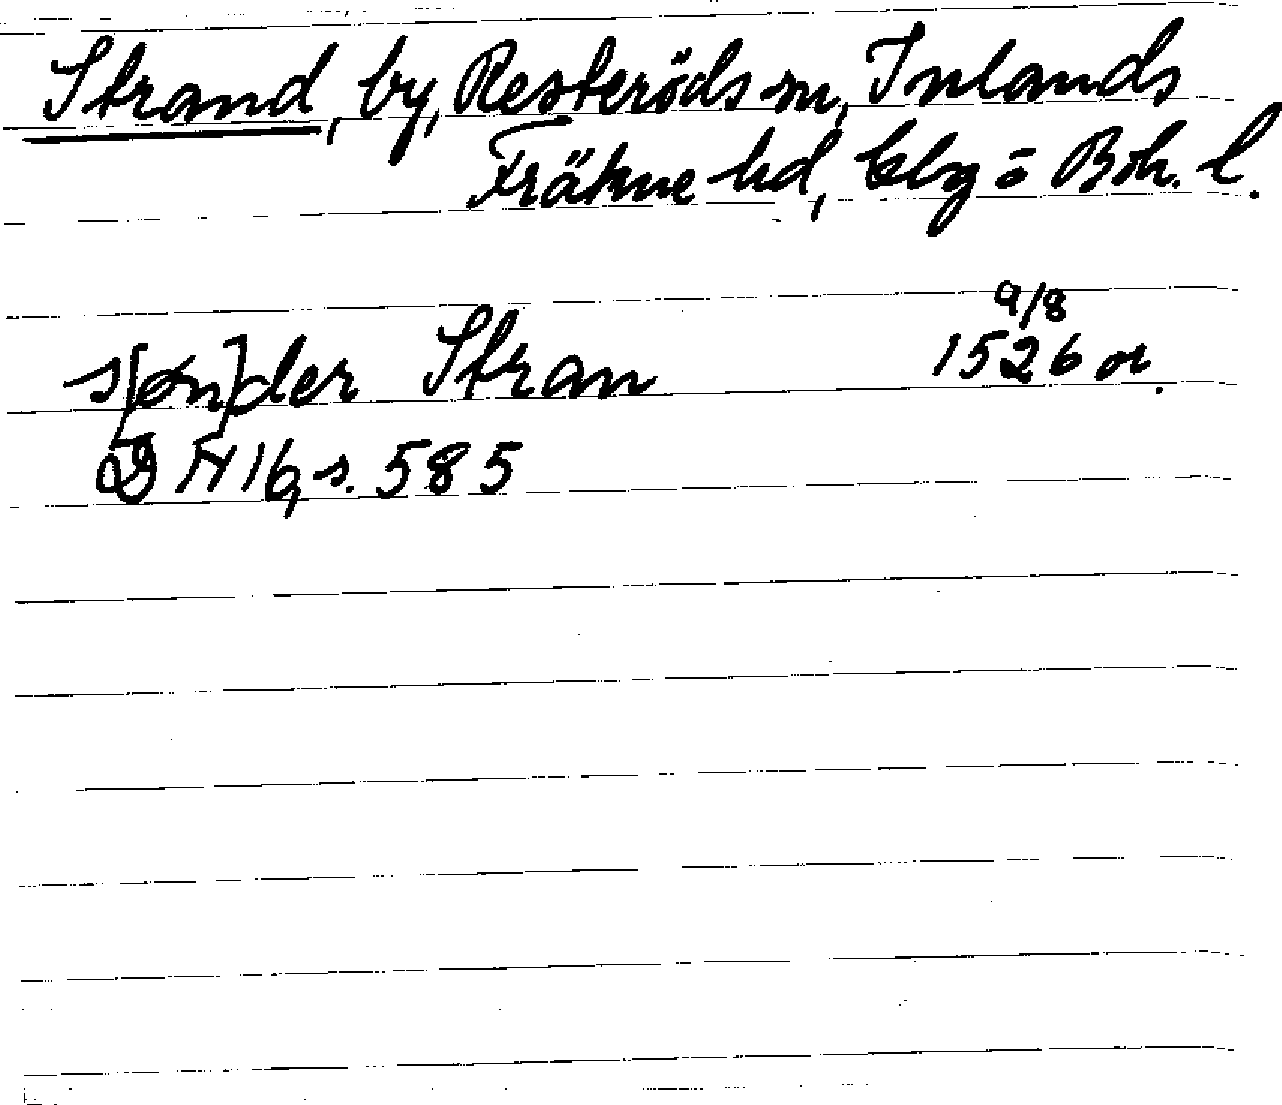 Strand, by, Resteröds sn, Inlands
Fräkne hd, Gbg o Boh. l.
9/8
s[øn]der Stran 1526 or.
DN 16, s. 585